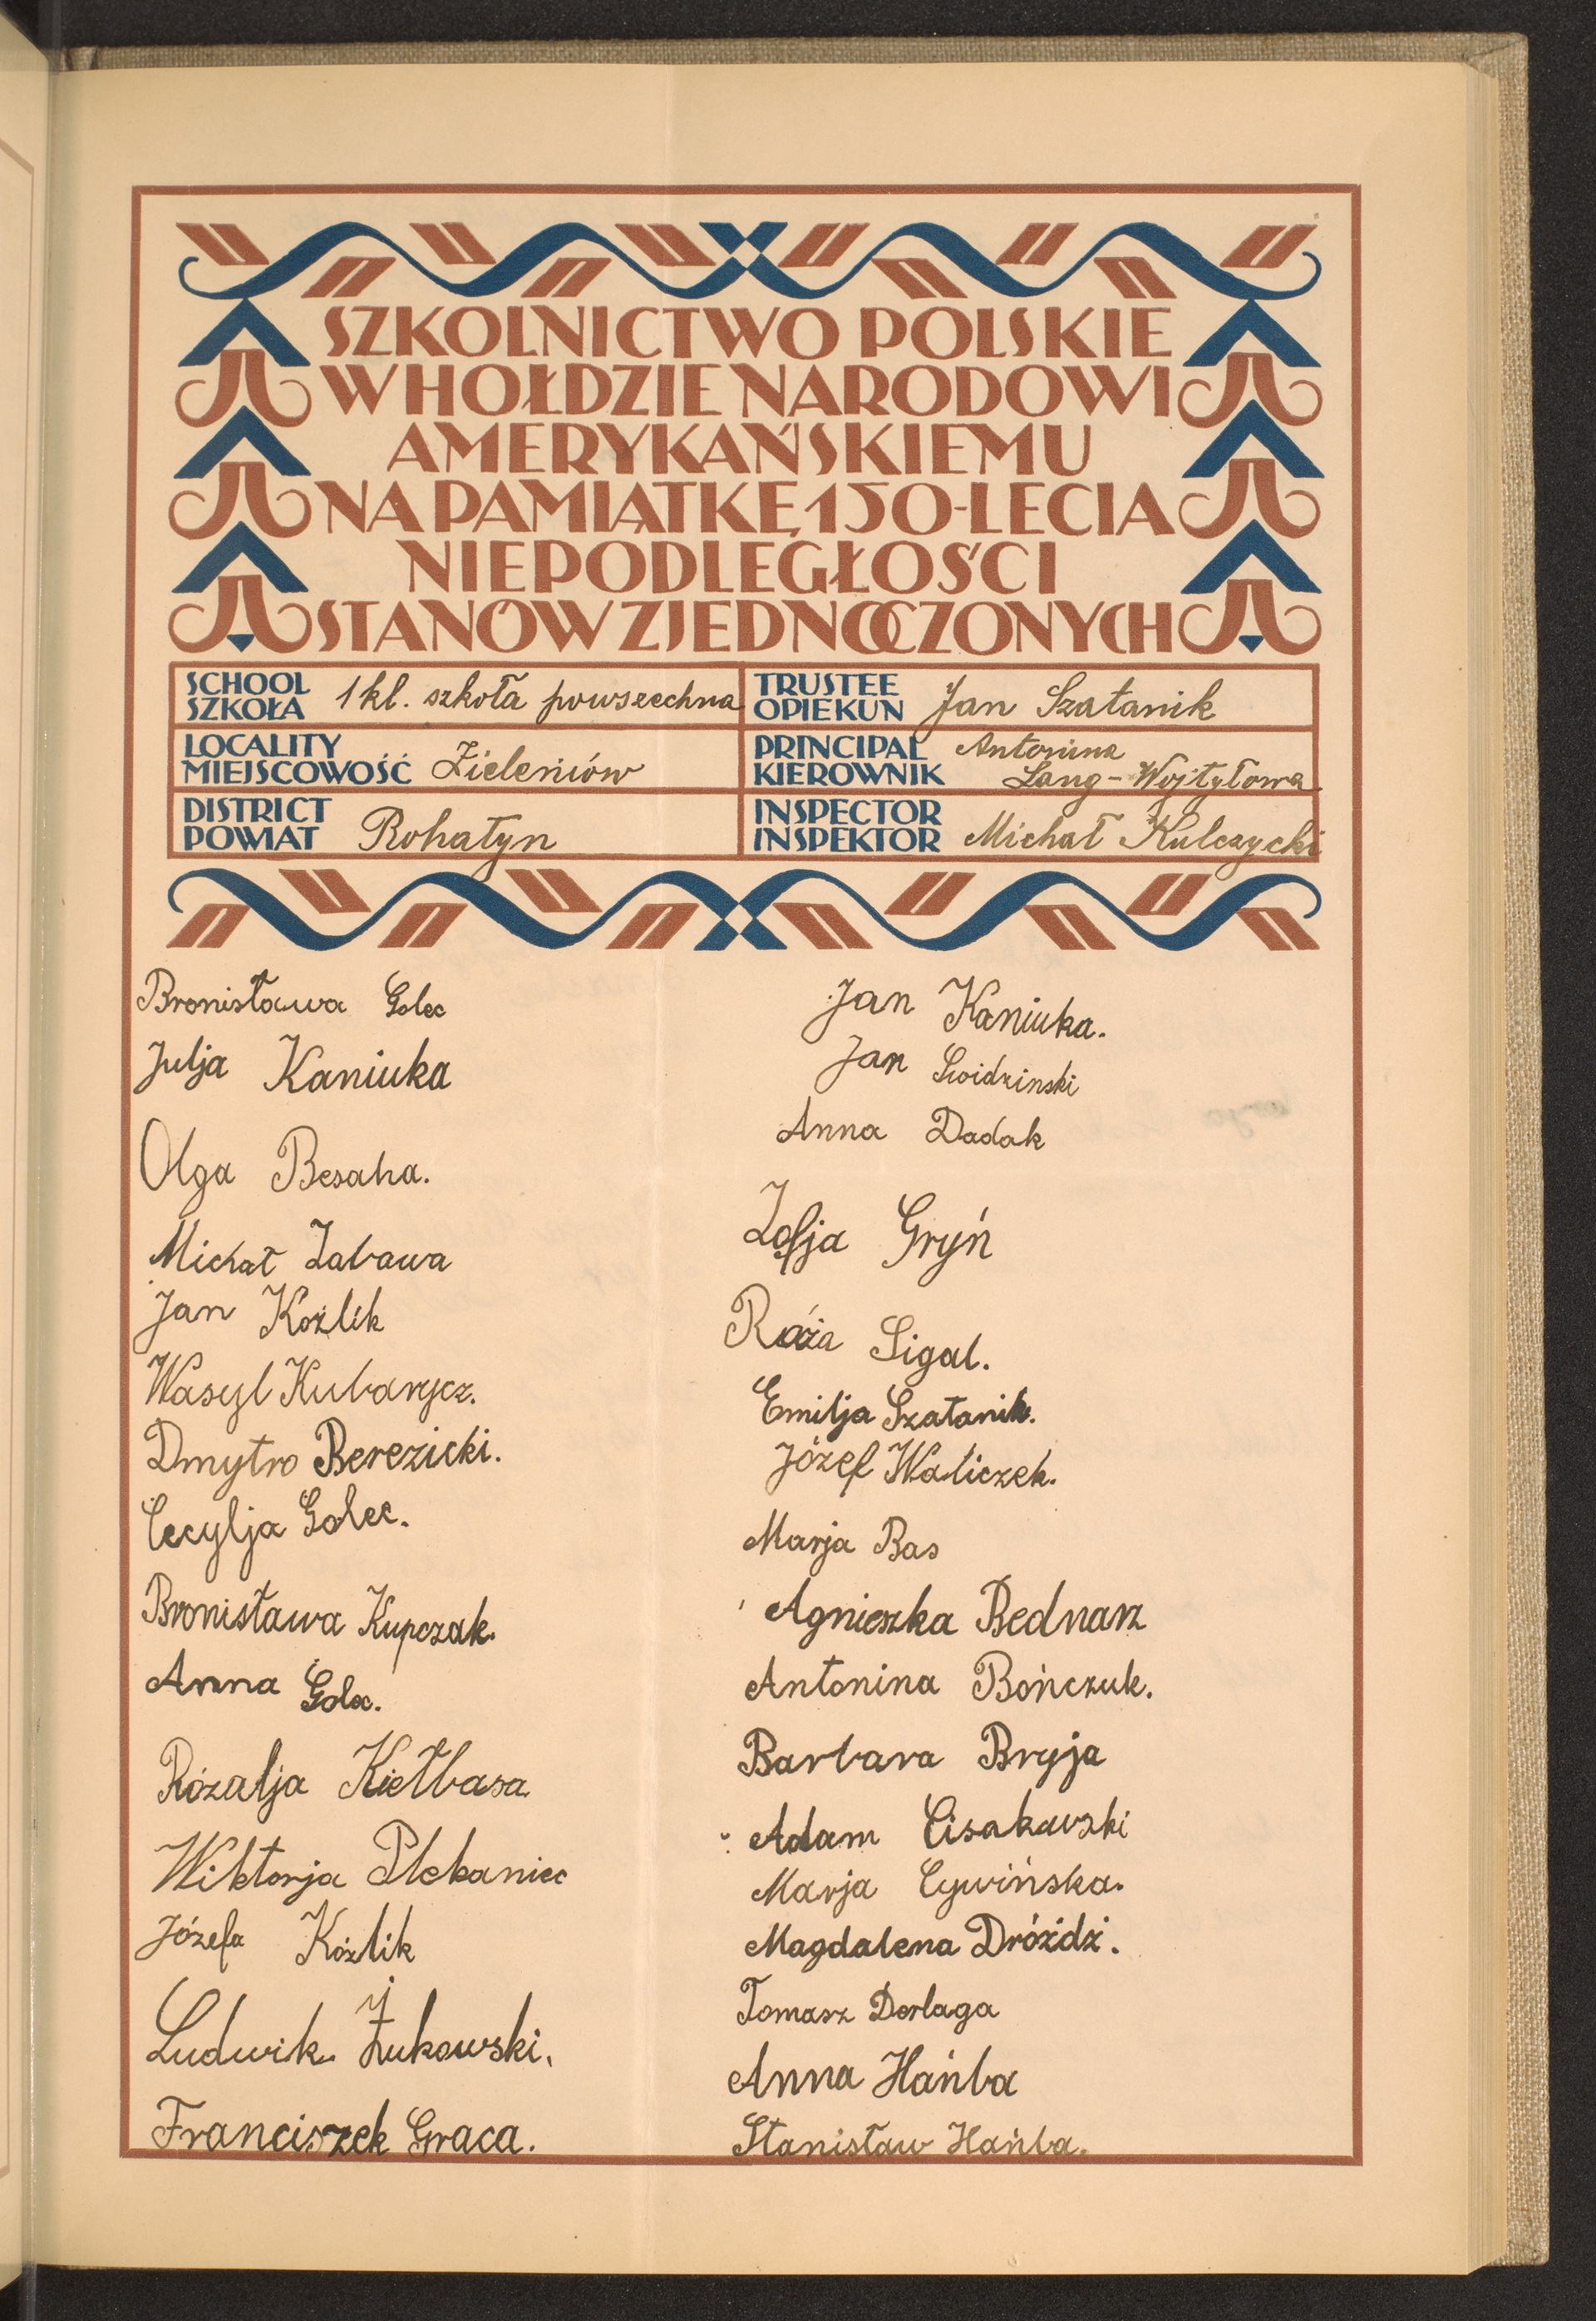 SZKOLNICTWO POLSKIE
W HOŁDZIE NARODOWI
AMERYKAŃSKIEMU
NA PAMIĄTKĘ 150-LECIA
NIEPODLEGŁOŚCI
STANÓW ZJEDNOCZONYCH
SCHOOL
SZKOŁA 1 kl. szkoła powszechna
LOCALITY
MIEJSCOWOŚĆ Zieleniów
DISTRICT
POWIAT Rohatyn
TRUSTEE
OPIEKUN Jan Szatanik
PRINCIPAL Antonina
KIEROWNIK Lang-Wojtyłowa
INSPECTOR
INSPEKTOR Michał Kulczycki
Bronisława Golec
Julja Kaniuka
Olga Besaha.
Michał Zabawa
Jan Koźlik
Wasyl
Dmytro Berezicki.
Cecylja Golec.
Bronisława Kupczak.
Anna Golec.
Rózalja Kiełbasa
Wiktorja Plekaniec
Józefa Koźlik
Ludwik Żukowski.
Franciszek Graca.
Jan Kaniuka.
Jan Swidzinski
Anna Dadak
Zofja Gryń
Róża Sigal.
Emilja Szatanik.
Józef Waliczek.
Marja Bas
Agnieszka Bednarz
Antonina Bończuk.
Barbara Bryja
Adam Cisakowski
Marja Cywińska.
Magdalena Dróżdż.
Tomasz Dorlaga
Anna Hańba
Stanisław Hańba.